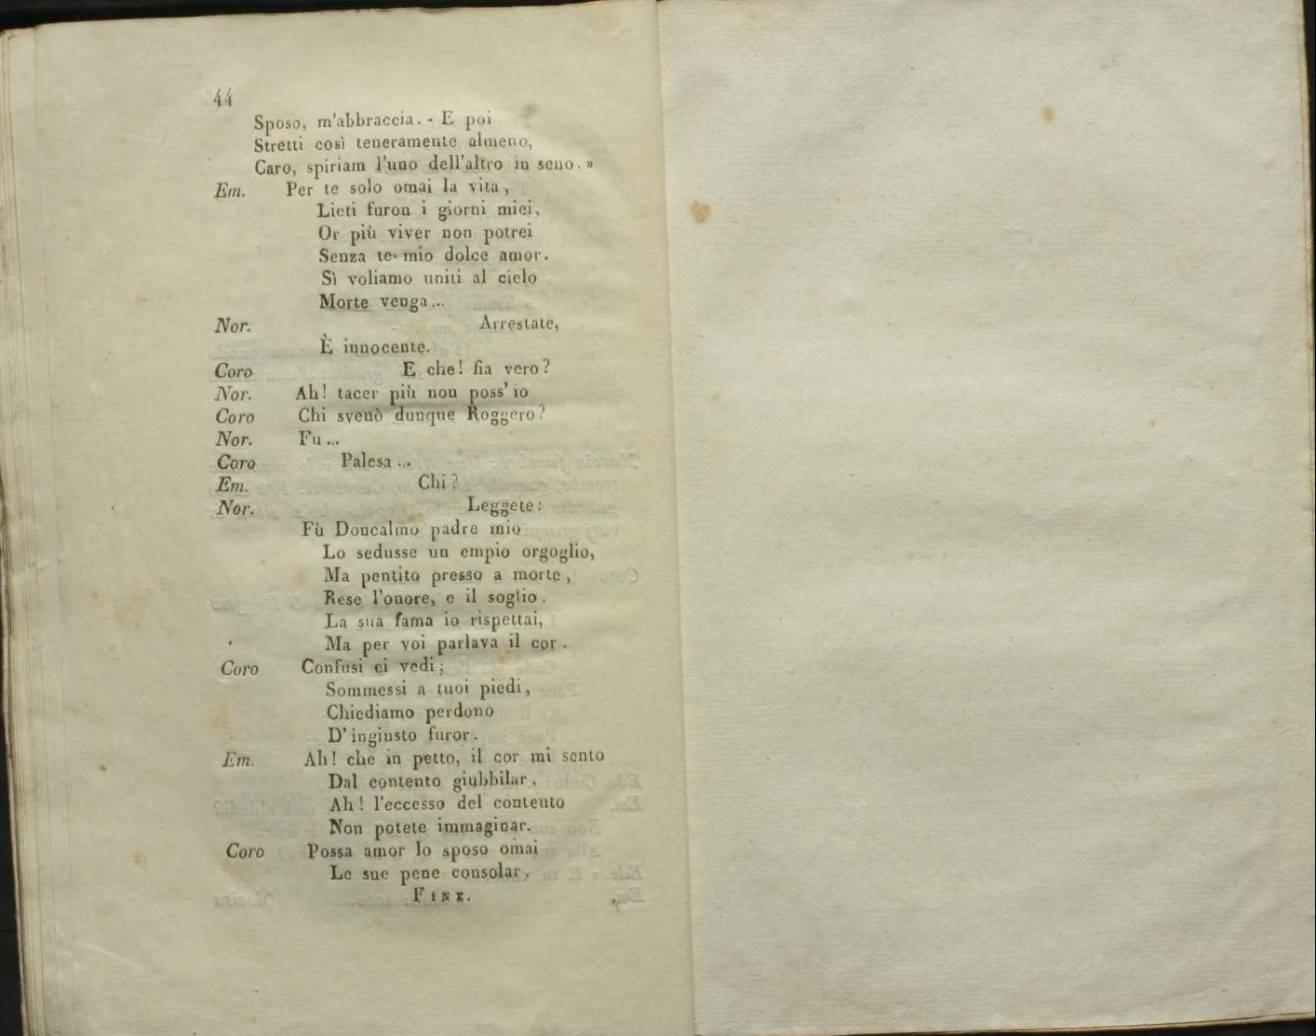 44
Sposo, m'abbraccia. - E poi
Stretti così teneramente almeno,
Caro, spiriam l'uno dell'altro in seno. »
Em. Per te solo omai la vita,
Lieti furon i giorni miei,
Or più viver non potrei
Senza te mio dolce amor.
Sì voliamo uniti al cielo
Morte venga...
Nor. Arrestate,
È innocente.
Coro E che! fia vero?
Nor. Ah! tacer più non poss' io
Coro Chi svenò dunque Roggero?
Nor. Fu...
Coro Palesa...
Em. Chi?
Nor. Leggete:
Fù Doncalmo padre mio
Lo sedusse un empio orgoglio,
Ma pentito presso a morte,
Rese l'onore, e il soglio.
La sua fama io rispettai,
Ma per voi parlava il cor.
Coro Confusi ci vedi;
Sommessi a tuoi piedi,
Chiediamo perdono
D' ingiusto furor.
Em. Ah! che in petto, il cor mi sento
Dal contento giubbilar.
Ah! l'eccesso del contento
Non potete immaginar.
Coro Possa amor lo sposo omai
Le sue pene consolar.
FINE.